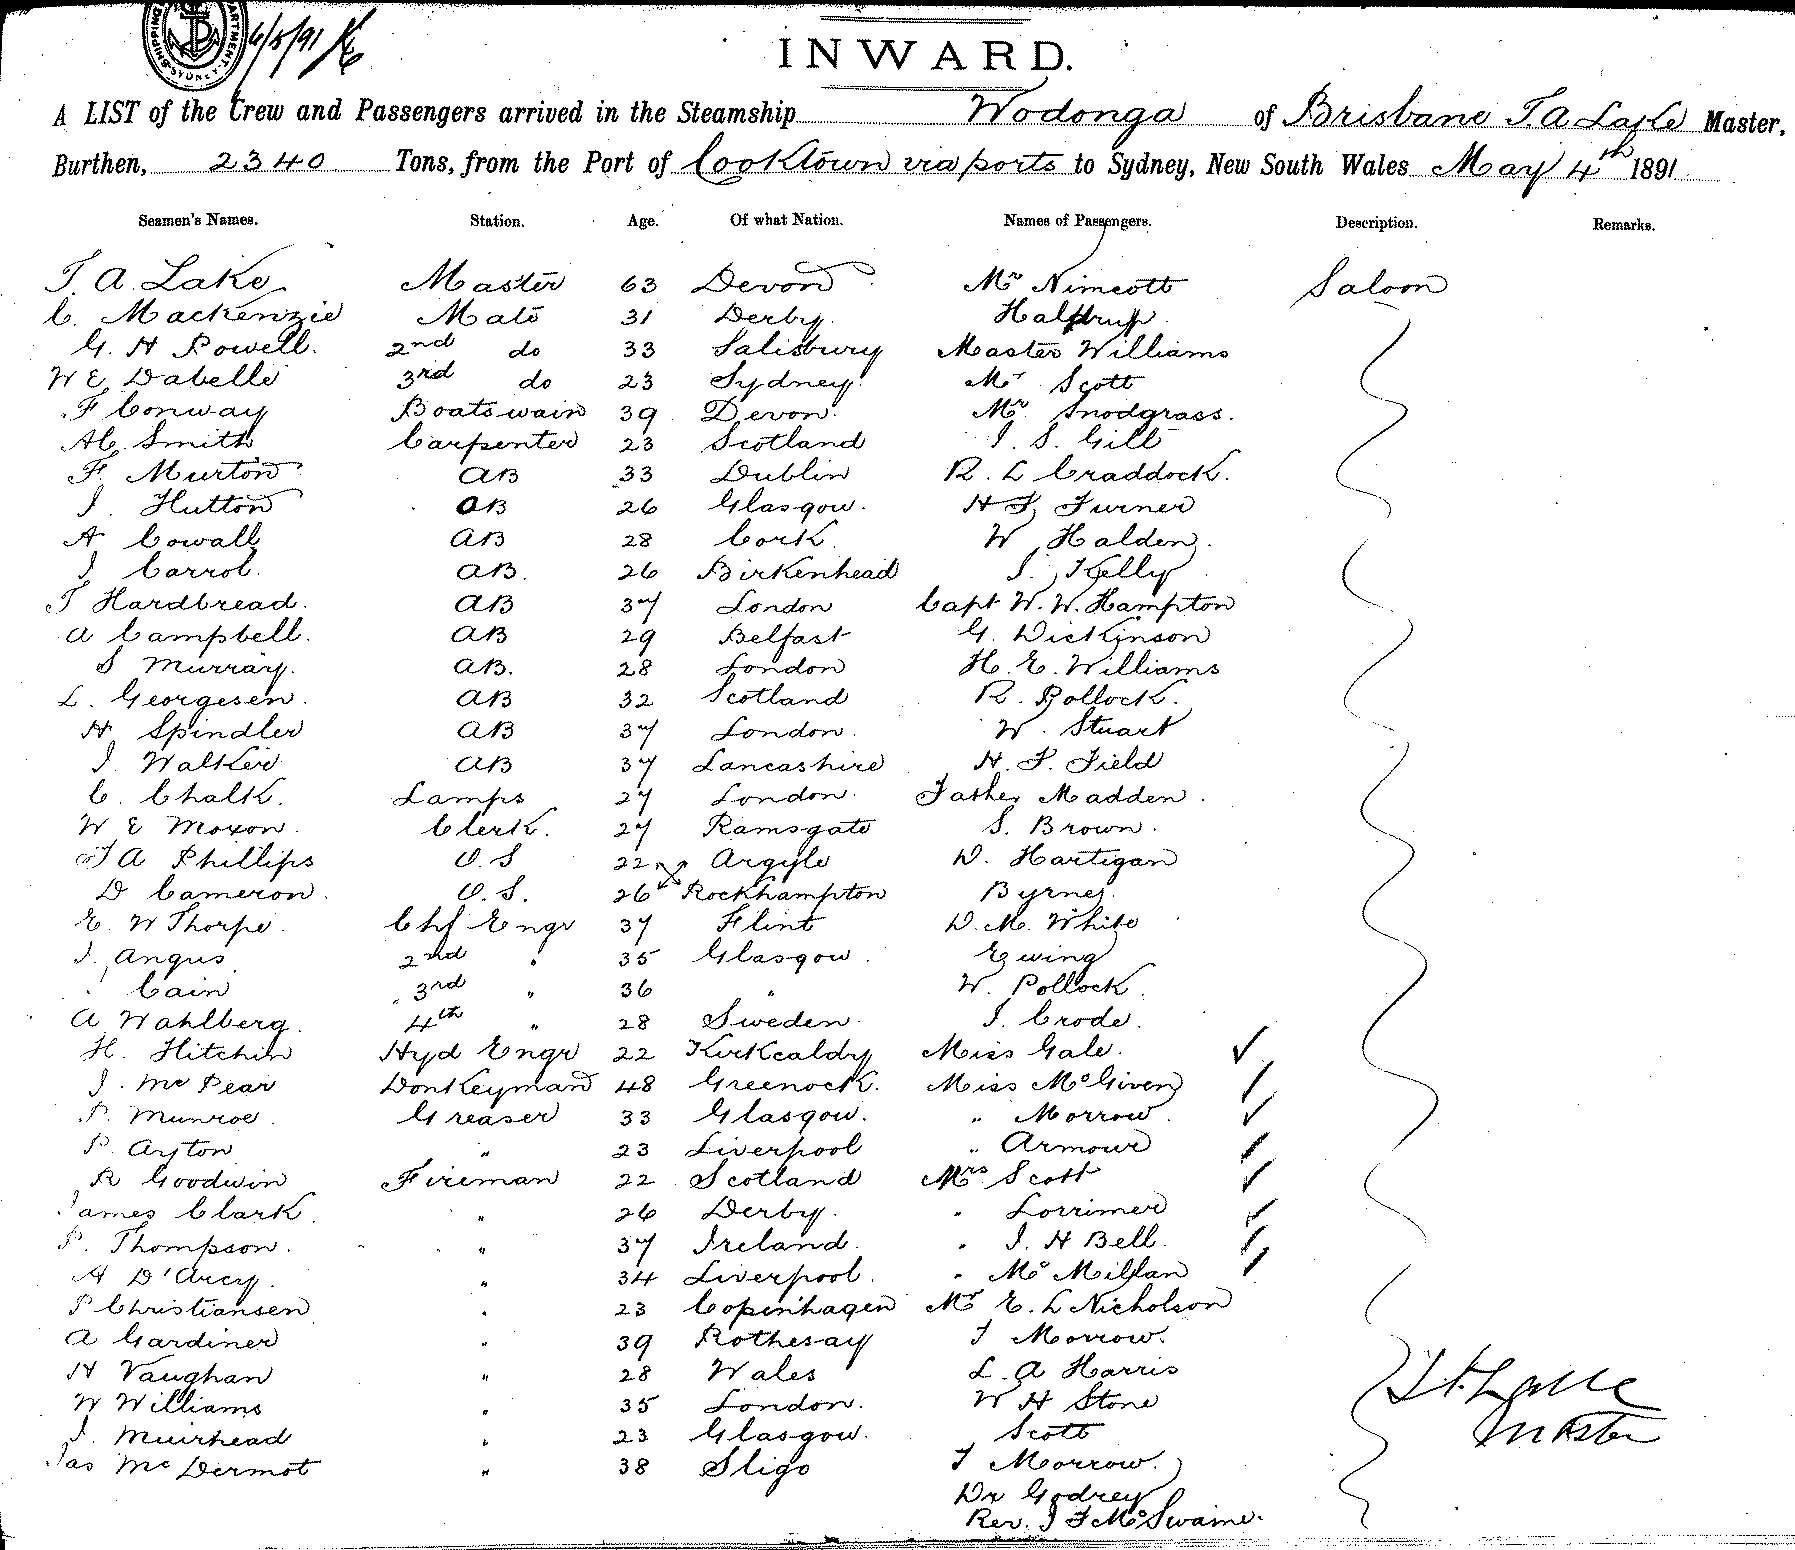 6/5/91
SHIPPING DEPARTMENT SYDNEY
INWARD.
A LIST of the Crew and Passengers arrived in the Steamship Wodonga of Brisbane T. A Lake Master,
Burthen, 2340 Tons, from the Port of Cooktown via ports to Sydney, New South Wales May 4th 1891
Seamen's Names. Station. Age. Of what Nation. Names of Passengers. Description. Remarks.
T. A. Lake Master 63 Devon Mr Nimcott Saloon
C. Mackenzie Mate 31 Derby.
G. H Powell. 2nd do 33 Salisbury Master Williams
W E Dabelle 3rd do 23 Sydney Mr Scott
F Conway Boatswain 39 Devon. Mr Snodgrass.
AC Smith Carpenter 23 Scotland J. S. Gill
F. Murton AB 33 Dublin R. L Craddock.
J. Hutton AB 26 Glasgow. H F. Turner
A Cowall AB 28 Cork W Halden.
J Carrol. AB. 26 Birkenhead J. Kelly
T Hardbread. AB 37 London Capt W. W. Hampton
A Campbell. AB 29 Belfast G. Dickinson
S Murray. AB. 28 London H. E. Williams
L. Georgesen. AB 32 Scotland R. Pollock.
H Spindler AB 37 London. W. Stuart
J. Walker AB 37 Lancashire H. F. Field
C. Chalk. Lamps 27 London. Father Madden.
W E Moxon. Clerk. 27 Ramsgate S. Brown.
A Phillips O. S 22 Argyle D. Hartigan
D Cameron. O. S. 26 Rockhampton Byrnes
E. W Thorpe. Chf Engr 37 Flint D. M. White
J. Angus 2nd " 35 Glasgow. Ewing
Cain 3rd " 36 " W. Pollock.
A Wahlberg. 4th " 28 Sweden. J. Crode.
H. Hitchin Hyd Engr 22 Kirkcaldy Miss Gale.
J. McPear Donkeyman 48 Greenock. Miss McGiven
P. Munroe. Greaser 33 Glasgow. " Morrow.
P. Ayton " 23 Liverpool " Armour
R Goodwin Fireman 22 Scotland Mrs Scott
James Clark. " 26 Derby. " Lorrimer
P. Thompson. " 37 Ireland. " J. H Bell.
A D'Arcy. " 34 Liverpool. " McMillan
P Christiansen " 23 Copenhagen Mr E. L Nicholson
A Gardiner " 39 Rothesay T Morrow.
H Vaughan " 28 Wales L. A Harris
W Williams " 35 London. W H Stone
J. Muirhead " 23 Glasgow. Scott
Jas McDermot " 38 Sligo T Morrow.
Dr Godrey
Rev. J F McSwaine.
T A. Lake
Master